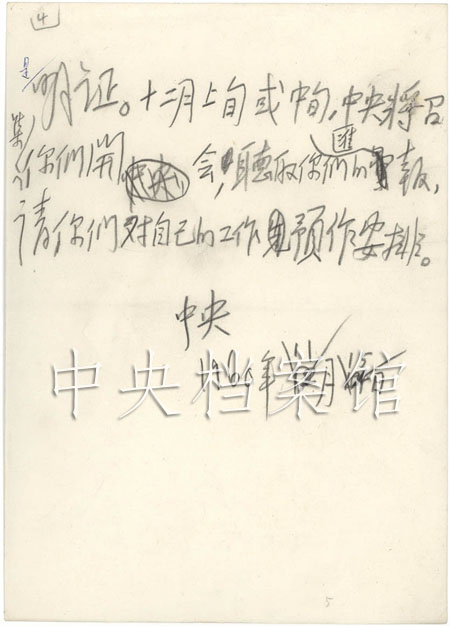 4
是
明证。十二月上旬或中旬,中央将召
集你们开会,聽取你们的匯報,
请你们对自己的工作预作安排。
中央
年 月
中央档案馆
5